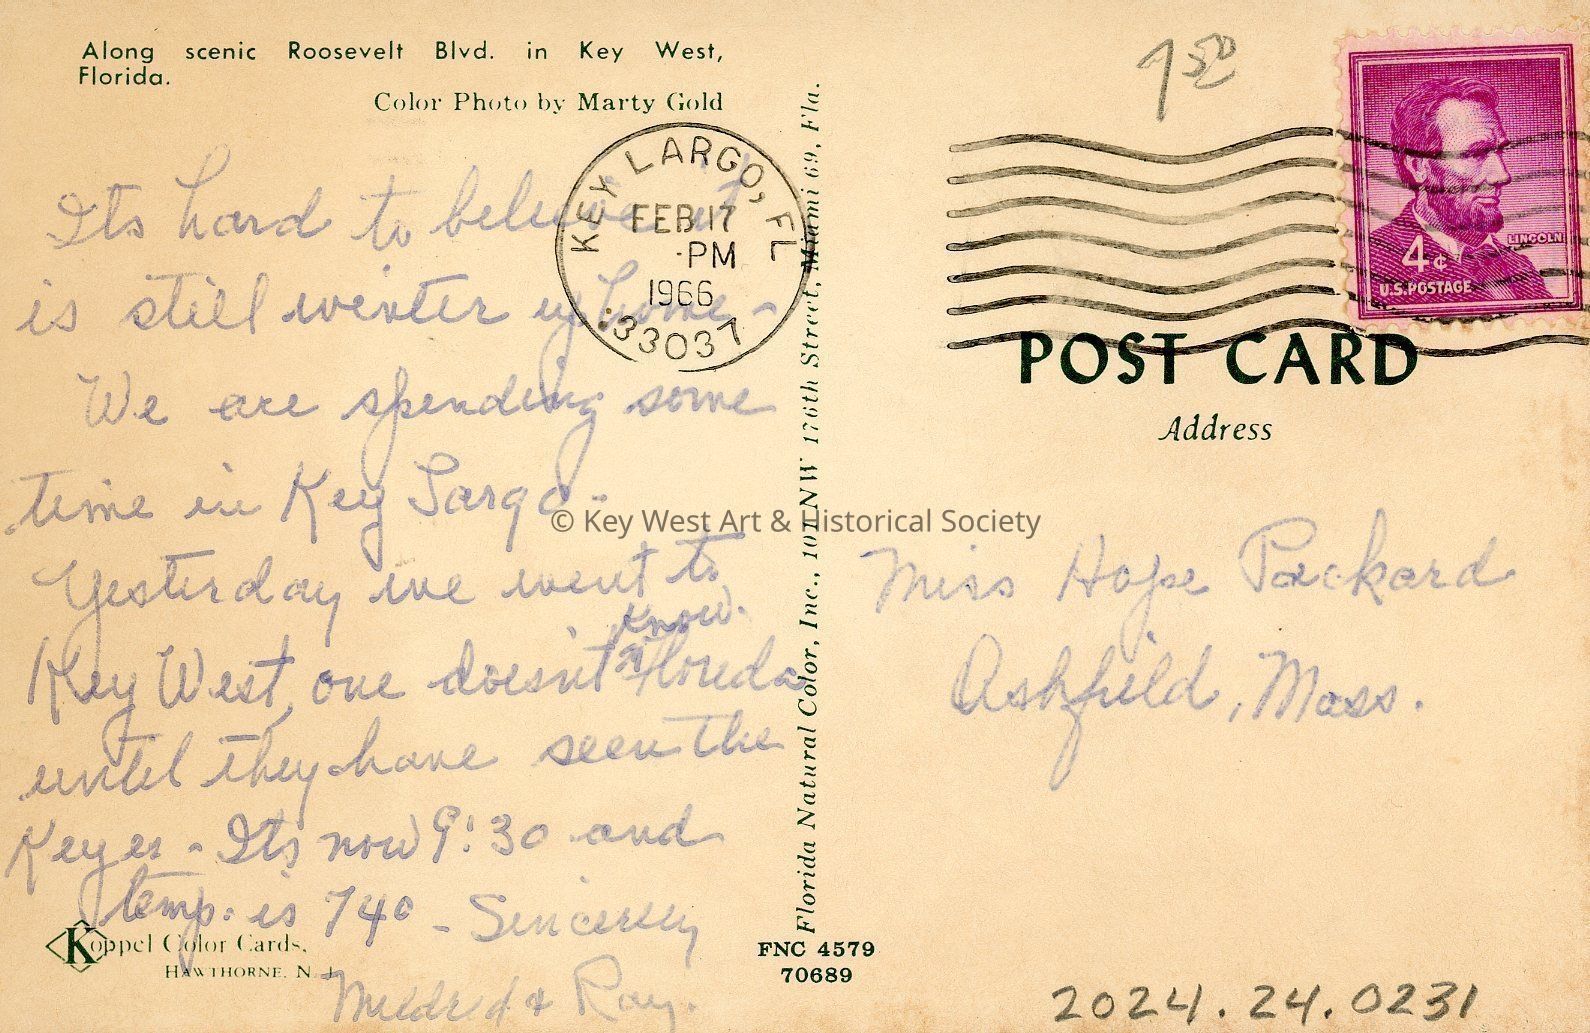 Along scenic Roosevelt Blvd. in Key West,
Florida.
Color Photo by Marty Gold
Its hard to believe it
is still winter up home -
We are spending some
time in Key Largo -
Yesterday we went to
Key West, one doesn't know Florida
until they have seen the
Keyes - Its now 9:30 and
temp. is 74° - Sincerely
Mildred & Ray.
Koppel Color Cards,
HAWTHORNE, N. J.
KEY LARGO, FL
FEB 17
PM
1966
33037
Florida Natural Color, Inc., 101 NW 176th Street, Miami 69, Fla.
FNC 4579
70689
7 50
LINCOLN
4¢
U.S. POSTAGE
POST CARD
Address
Miss Hope Packard
Ashfield, Mass.
2024.24.0231
© Key West Art & Historical Society